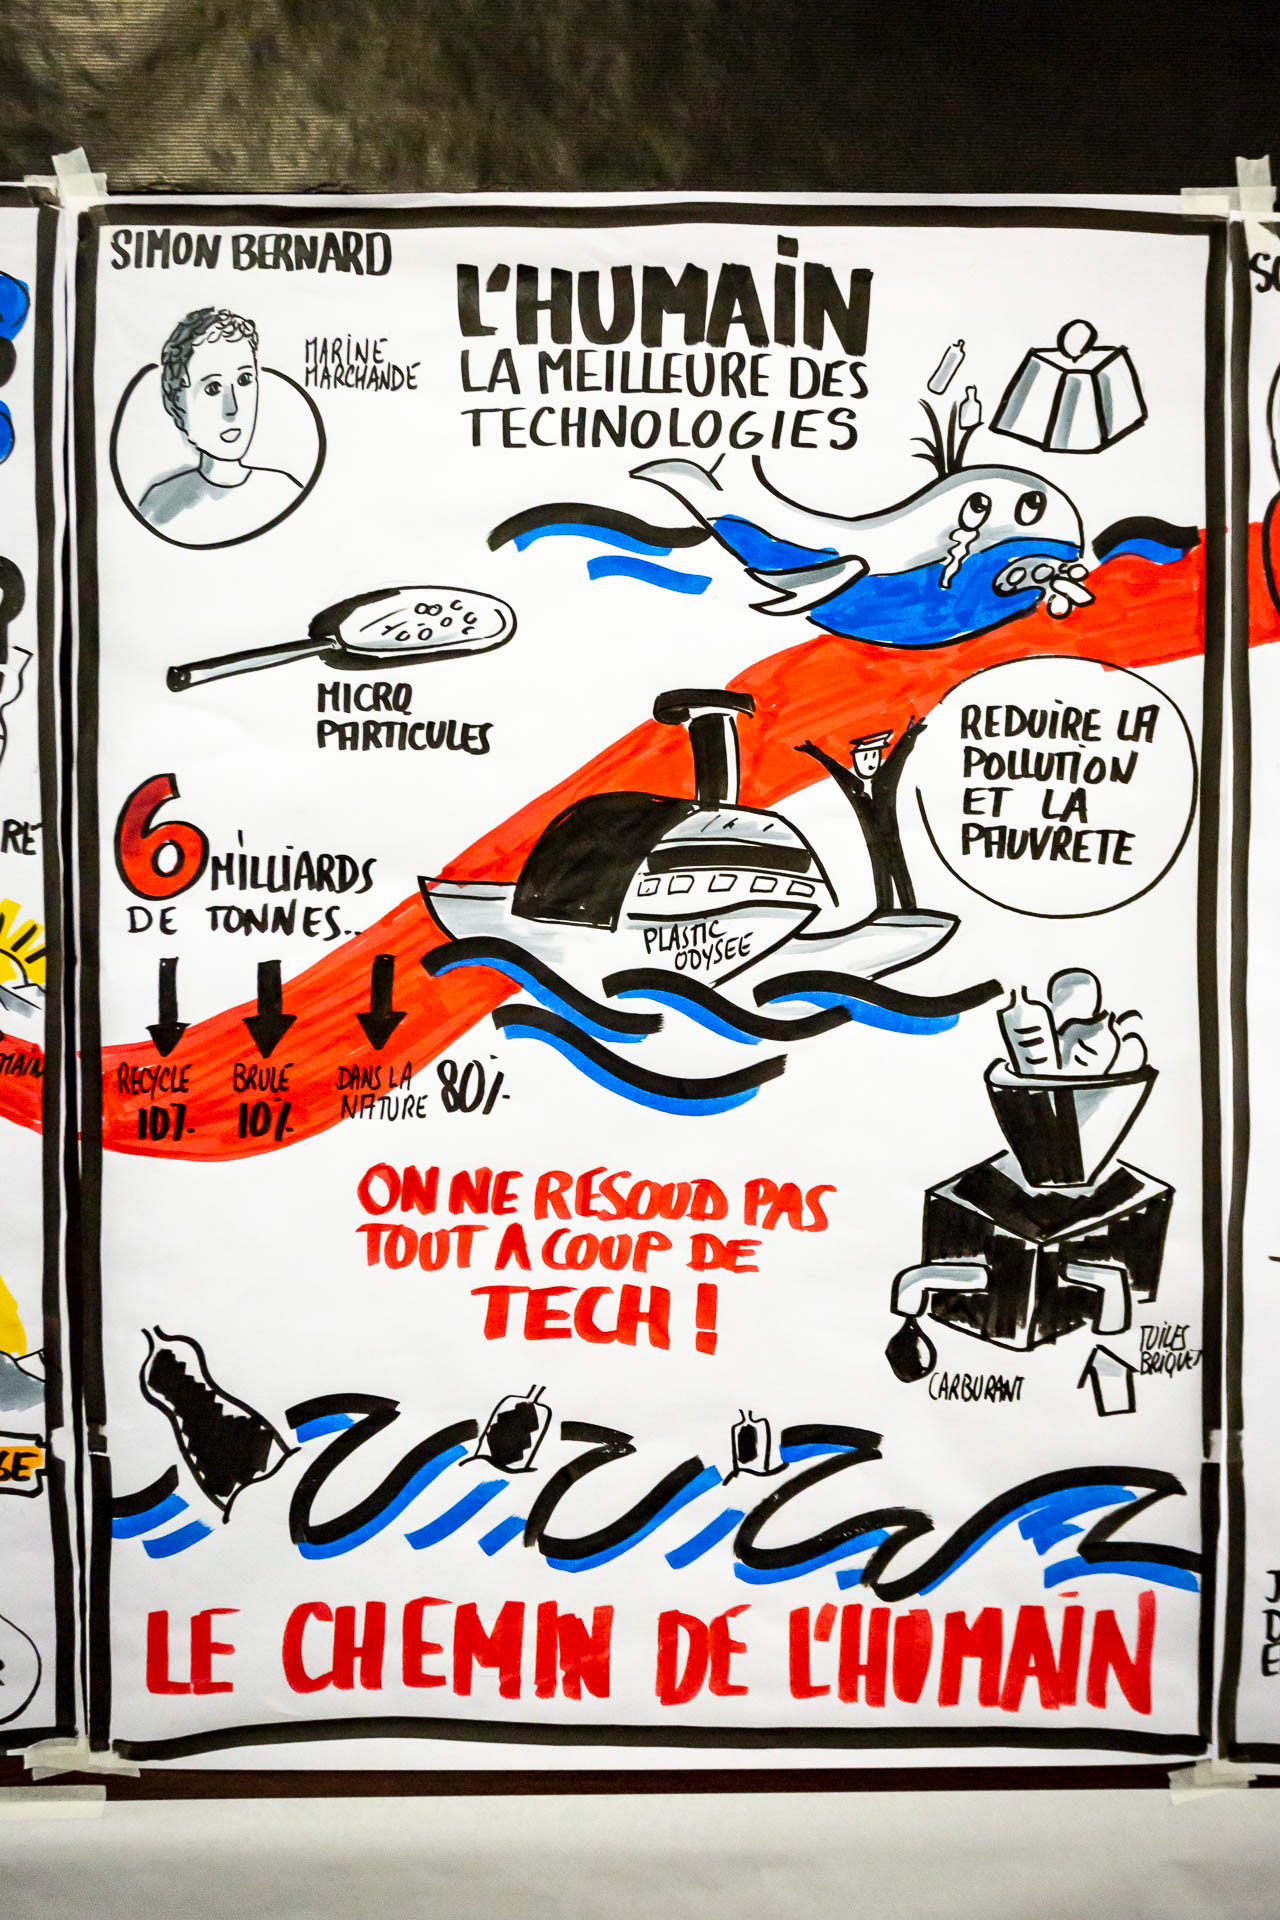 SIMON BERNARD
MARINE
MARCHANDE
L'HUMAIN
LA MEILLEURE DES
TECHNOLOGIES
MICRO
PARTICULES
REDUIRE LA
POLLUTION
ET LA
PAUVRETE
6 MILLIARDS
DE TONNES..
PLASTIC
ODYSEE
RECYCLE
10%
BRULE
10%
DANS LA
NATURE 80%
ON NE RESOUD PAS
TOUT A COUP DE
TECH !
CARBURANT
TUILES
BRIQUES
LE CHEMIN DE L'HUMAIN